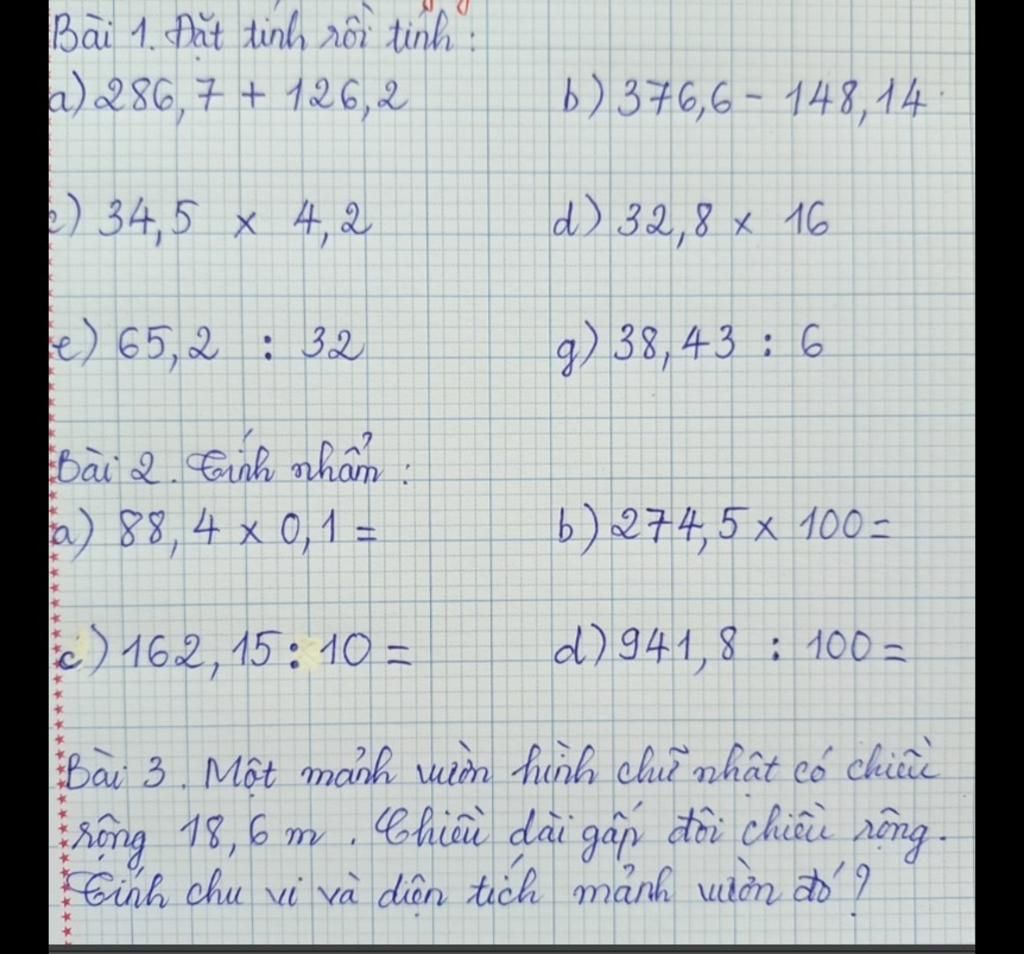 Bài 1. Đặt tính rồi tính:
a) 286,7 + 126,2 b) 376,6 - 148,14
c) 34,5 x 4,2 d) 32,8 x 16
e) 65,2 : 32 g) 38,43 : 6
Bài 2. Tính nhẩm:
a) 88,4 x 0,1 = b) 274,5 x 100 =
c) 162,15 : 10 = d) 941,8 : 100 =
Bài 3. Một mảnh vườn hình chữ nhật có chiều
rộng 18,6 m. Chiều dài gấp đôi chiều rộng.
Tính chu vi và diện tích mảnh vườn đó?